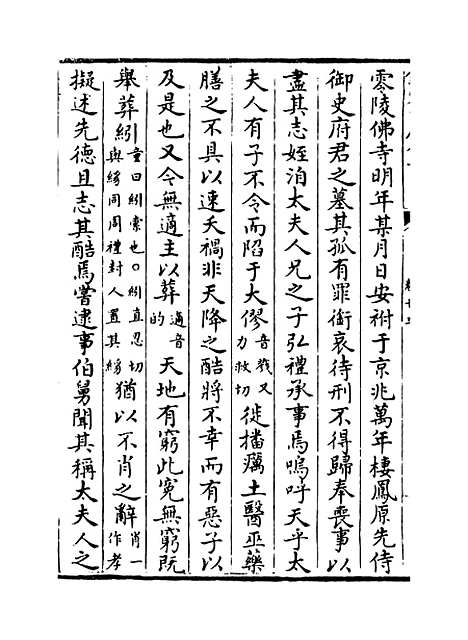 零陵佛寺明年某月日安祔于京兆萬年棲鳳原先侍
御史府君之墓其孤有罪銜哀待刑不得歸奉喪事以
盡其志姪洎太夫人兄之子弘禮承事焉嗚呼天乎太
夫人有子不令而陷于大僇音戮又力救切徙播癘土醫巫藥
膳之不具以速天禍非天降之酷將不幸而有惡子以
及是也又令無適主以葬適音的天地有窮此寃無窮既
舉葬紖童曰紖索也○紖直忍切與緣同周禮封人置其緣猶以不肖之辭肖一作孝
擬述先德且志其酷焉嘗逮事伯舅聞其稱太夫人之